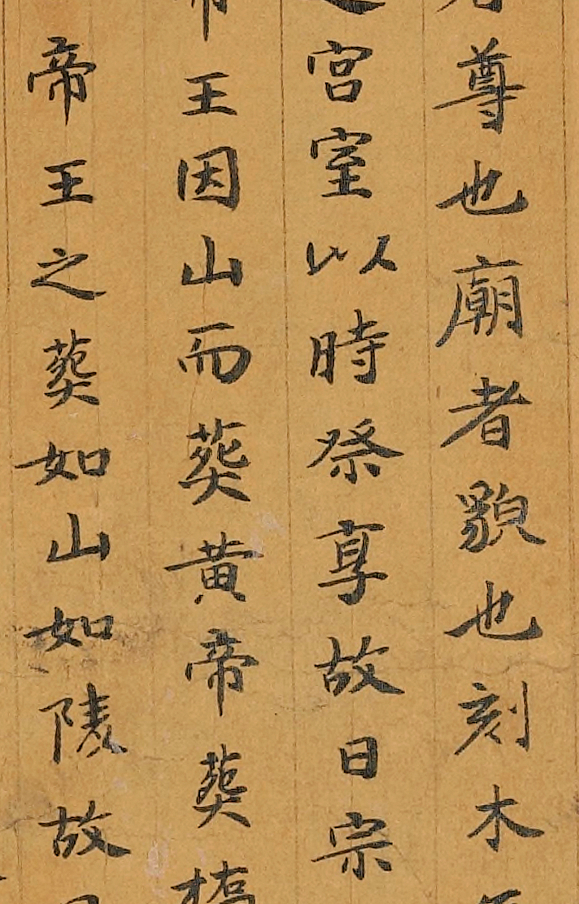 尊也廟者貌也刻木
宫室以時祭享故曰宗
帝王因山而葬黄帝葬橋
帝王之葬如山如陵故曰